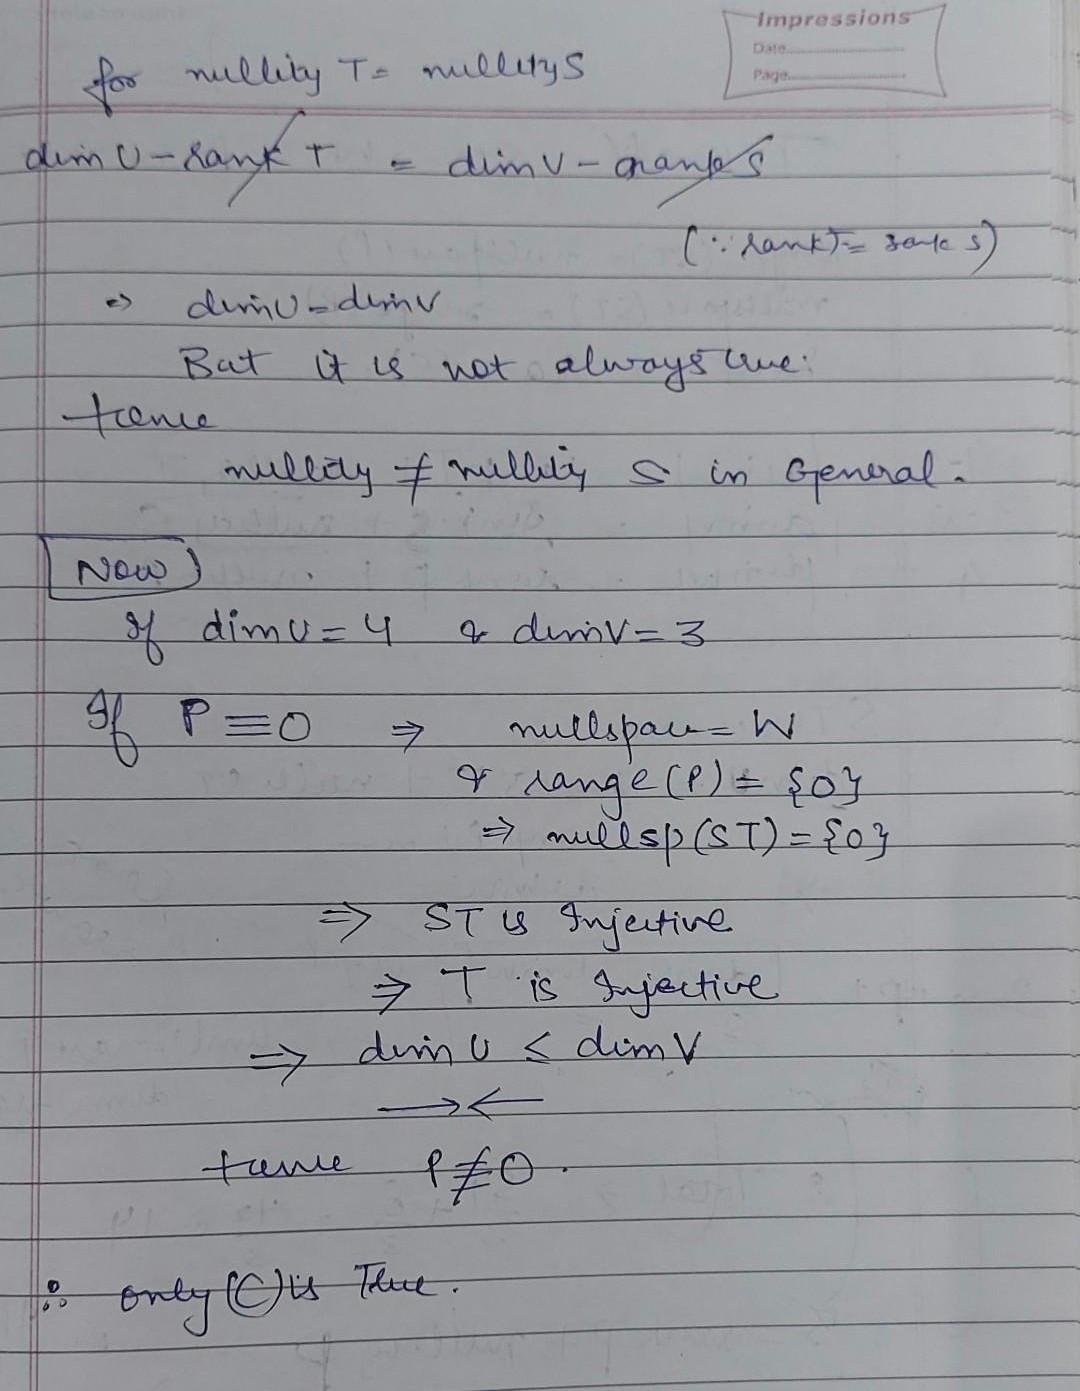 Impressions
Date
Page
for nullity T = nullity S
dim U - rank T = dim V - rank S
(∵ rank T = rank S)
⇒ dim U = dim V
But it is not always true.
Hence
nullity ≠ nullity S in General.
Now
If dim U = 4 & dim V = 3
If P ≡ 0 ⇒ nullspace = W
& range (P) = {0}
⇒ nullsp (ST) = {0}
⇒ ST is Injective
⇒ T is Injective
⇒ dim U ≤ dim V
→←
Hence P ≢ 0.
∴ only (C) is True.